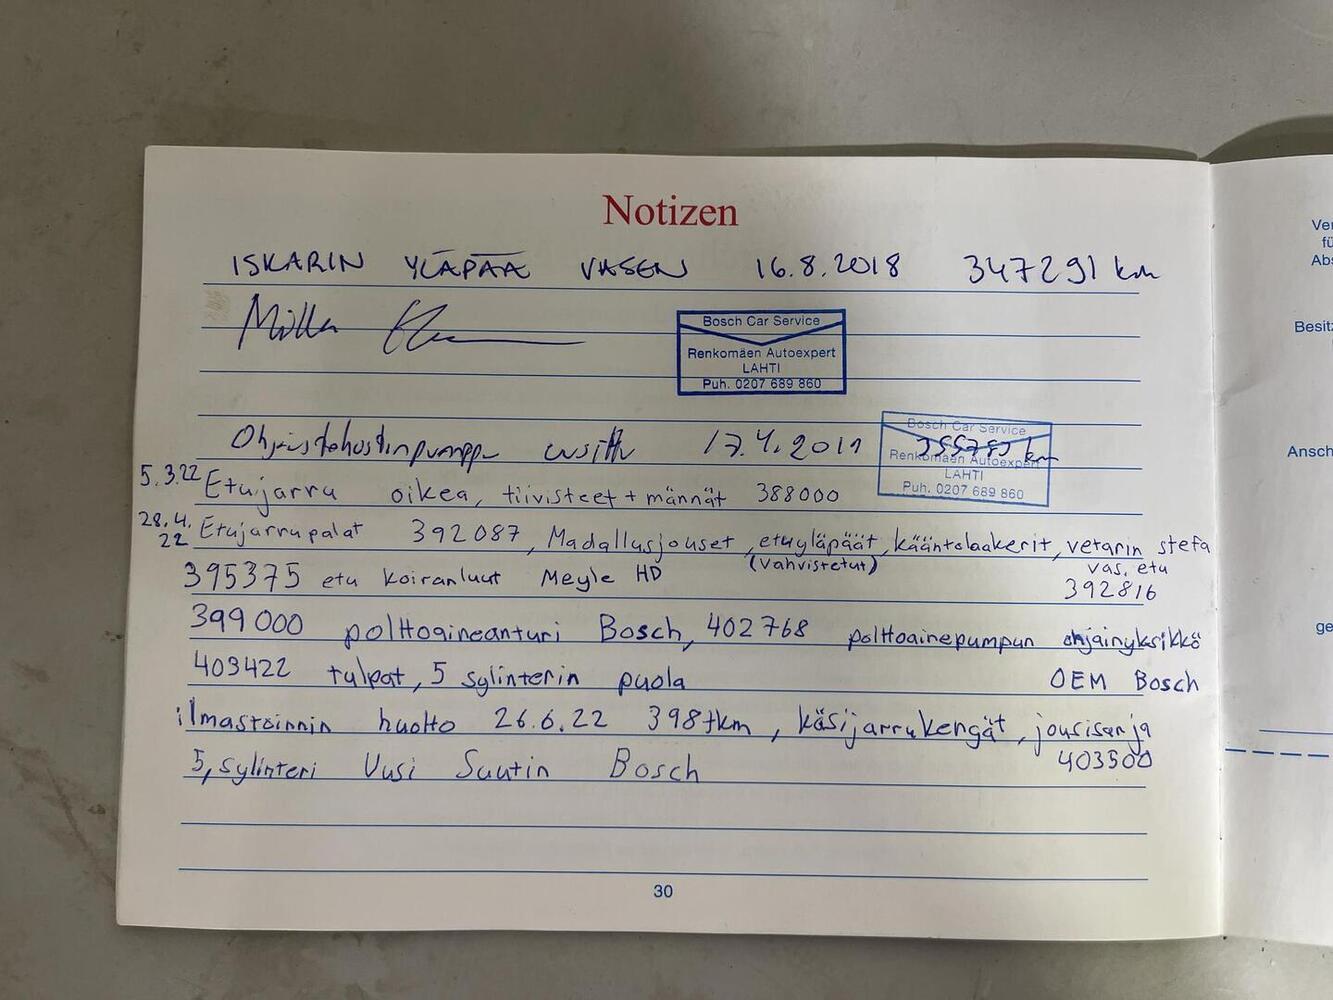 Notizen
ISKARIN YLÄPÄÄ VASEN 16.8.2018 347291 km
Bosch Car Service
Renkomäen Autoexpert
LAHTI
Puh. 0207 689 860
Ohjaustehostinpumppu uusittu 17.4.2019 km
Bosch Car Service
Renkomäen Autoexpert
LAHTI
Puh. 0207 689 860
5.3.22 Etujarru oikea, tiivisteet + männät 388000
28.4.22 Etujarrupalat 392087, Madallusjouset, etuyläpäät, kääntölaakerit, vetarin stefa
(vahvistetut) vas. etu
395375 etu koiranluut Meyle HD 392816
399000 polttoaineanturi Bosch, 402768 polttoainepumpun ohjainyksikkö
403422 tulpat, 5 sylinterin puola OEM Bosch
ilmastoinnin huolto 26.6.22 398tkm, käsijarrukengät, jousisarja
5, sylinteri Uusi Suutin Bosch 403500
30
Ver
fü
Abs
Besitz
Ansch
ge